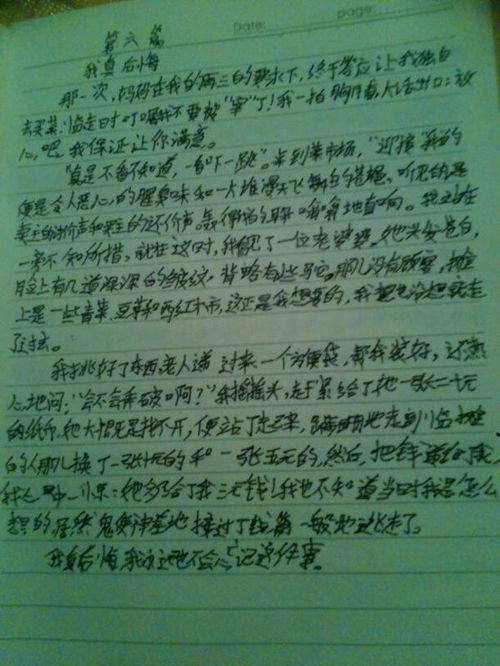 Date: page:
第六篇
我真后悔
那一次,妈妈在我的再三的要求下,终于答应让我独自
去买菜!临走时叮嘱我不要被"宰"了!我一拍胸脯,大话出口:放
心吧,我保证让你满意。
"真是不看不知道,一看吓一跳"。来到菜市场,"迎接"我的
便是令人恶心的腥臭味和一片漫天飞舞的苍蝇。听见的是
卖主的讨价声和买主的还价声,我的耳朵嗡嗡地直响。我站在
一旁不知所措,就在这时,我见了一位老婆婆。她头发苍白,
脸上有几道深深的皱纹,背略有些驼。那儿没有顾客,摊位
上是一些青菜、豆芽和西红柿,这正是我想要的,我想也没想就走
了过去。
我挑好了东西,老人递过来一个方便袋,帮我装好,还热
心地问:"会不会弄破啊?"我摇摇头,赶紧给了她一张二十元
的纸币,她大概是找不开,便站了起来,蹒跚地走到临摊
的人那儿换了一张十元的和一张五元的,然后,把钱递给了我。
我心里一惊:她多给了我三元钱!我也不知道当时我是怎么
想的,居然鬼使神差地接过了钱,箭一般地逃走了。
我真后悔,我永远也不会忘记这件事。